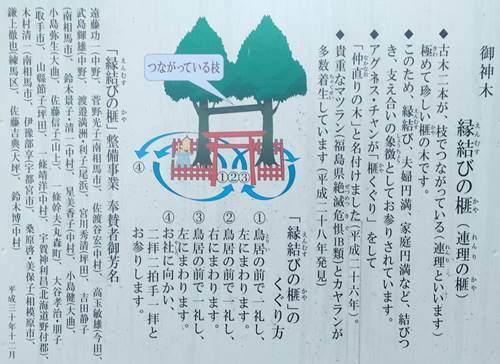 御神木
縁結びの榧（連理の榧）
えんむす
かや
れんり
かや
◆古木二本が、枝でつながっている（連理といいます）
極めて珍しい榧の木です。
◆このため、縁結び、夫婦円満、家庭円満など、結びつ
き、支え合いの象徴としてお参りされています。
◆アグネス・チャンが「榧くぐり」をして
「仲直りの木」と名付けました（平成二十六年）。
◆貴重なマツラン（福島県絶滅危惧ⅠB類）とカヤランが
多数着生しています（平成二十八年発見）
つながっている枝
①②③
④
④
「縁結びの榧」の
くぐり方
えんむす
かや
①鳥居の前で一礼し、
左にまわります。
②鳥居の前で一礼し、
右にまわります。
③鳥居の前で一礼し、
左にまわります。
④お社に向かい、
二拝二拍手一拝と
お参りします。
「縁結びの榧」整備事業 奉賛者御芳名
えんむす
かや
遠藤功一（中野）、菅野光子（南相馬市）、佐渡谷宏（中村）、髙玉敏雄（今田）、
武島輝雄（中野）、渡邉満洲・利子（尾浜）、宮川秀清（坪田）、吉田静子
（南相馬市）、鈴木景子・清二（中村）、星美香子（中村）、志賀
小島弥生（大曲）、佐藤信子（中村）、小島健（大曲）、
（取手市）、山縣節子（坪田）、一條靖洋（中村）、一條幹夫（丸森町）、大谷孝治・朋子
木村清一（南相馬市）、伊豫部京子（宇都宮市）、宇賀神利昌（北海道野付郡）、
鎌上徹也（練馬区）、佐藤吉典（大坪）、鈴木博（中村）、桑原啓・美保子（相模原市）、
平成三十年十二月